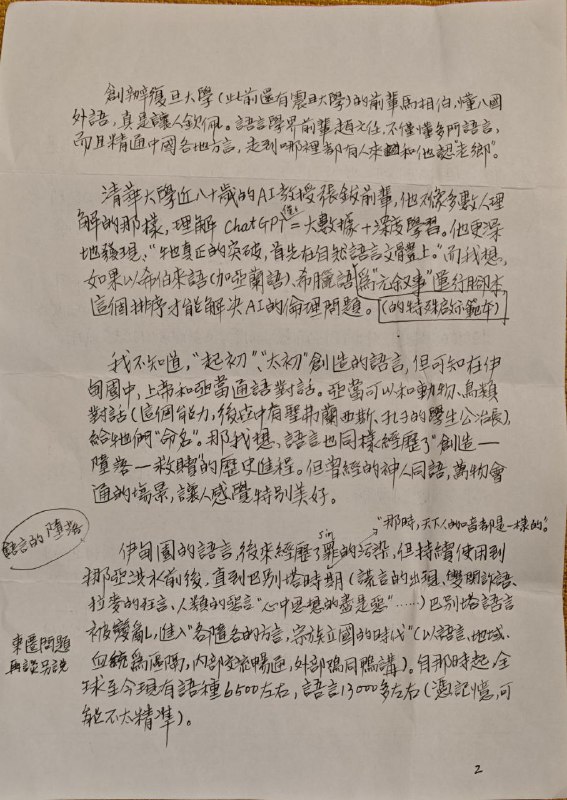 創辦復旦大學(此前還有震旦大學)的前輩馬相伯,懂八國
外語,真是讓人欽佩。語言學界前輩趙元任,不僅懂多門語言,
而且精通中國各地方言,走到哪裡都有人來和他認“老鄉”。
清華大學近八十歲的AI教授張鈸前輩,他不像多數人理
解的那樣,理解ChatGPT僅僅=大數據+深度學習。他更深
地發現、“牠真正的突破,首先在自然語言文體上。”而我想,
如果以希伯來語(加亞蘭語)、希臘語為“元敘事”運行腳本,
這個排序才能解決AI的倫理問題。(的特殊啟示範本)
我不知道,“起初”、“太初”創造的語言,但可知在伊
甸園中,上帝和亞當通話對話。亞當可以和動物、鳥類
對話(這個能力,後世中有聖弗蘭西斯、孔子的學生公冶長),
給牠們“命名”。那我想、語言也同樣經歷了“創造—
墮落—救贖”的歷史進程。但曾經的神人同語,萬物會
通的場景,讓人感覺特別美好。
“那時,天下人的口音都是一樣的”。
語言的墮落
sin
伊甸園的語言,後來經歷了罪的污染,但持續使用到
挪亞洪水前後,直到巴別塔時期(謊言的出現、雙關詐語、
拉麥的狂言、人類的惡言“心中思想的盡是惡”……)巴別塔語言
被變亂,進入“各隨各的方言,宗族立國的時代”(以語言、地域、
血統為隔閡,內部交流暢通,外部雞同鴨講)。自那時起,全
球至今現有語種6500左右,語言13000多左右(憑記憶,可
能不太精準)。
問題
再談另說
2